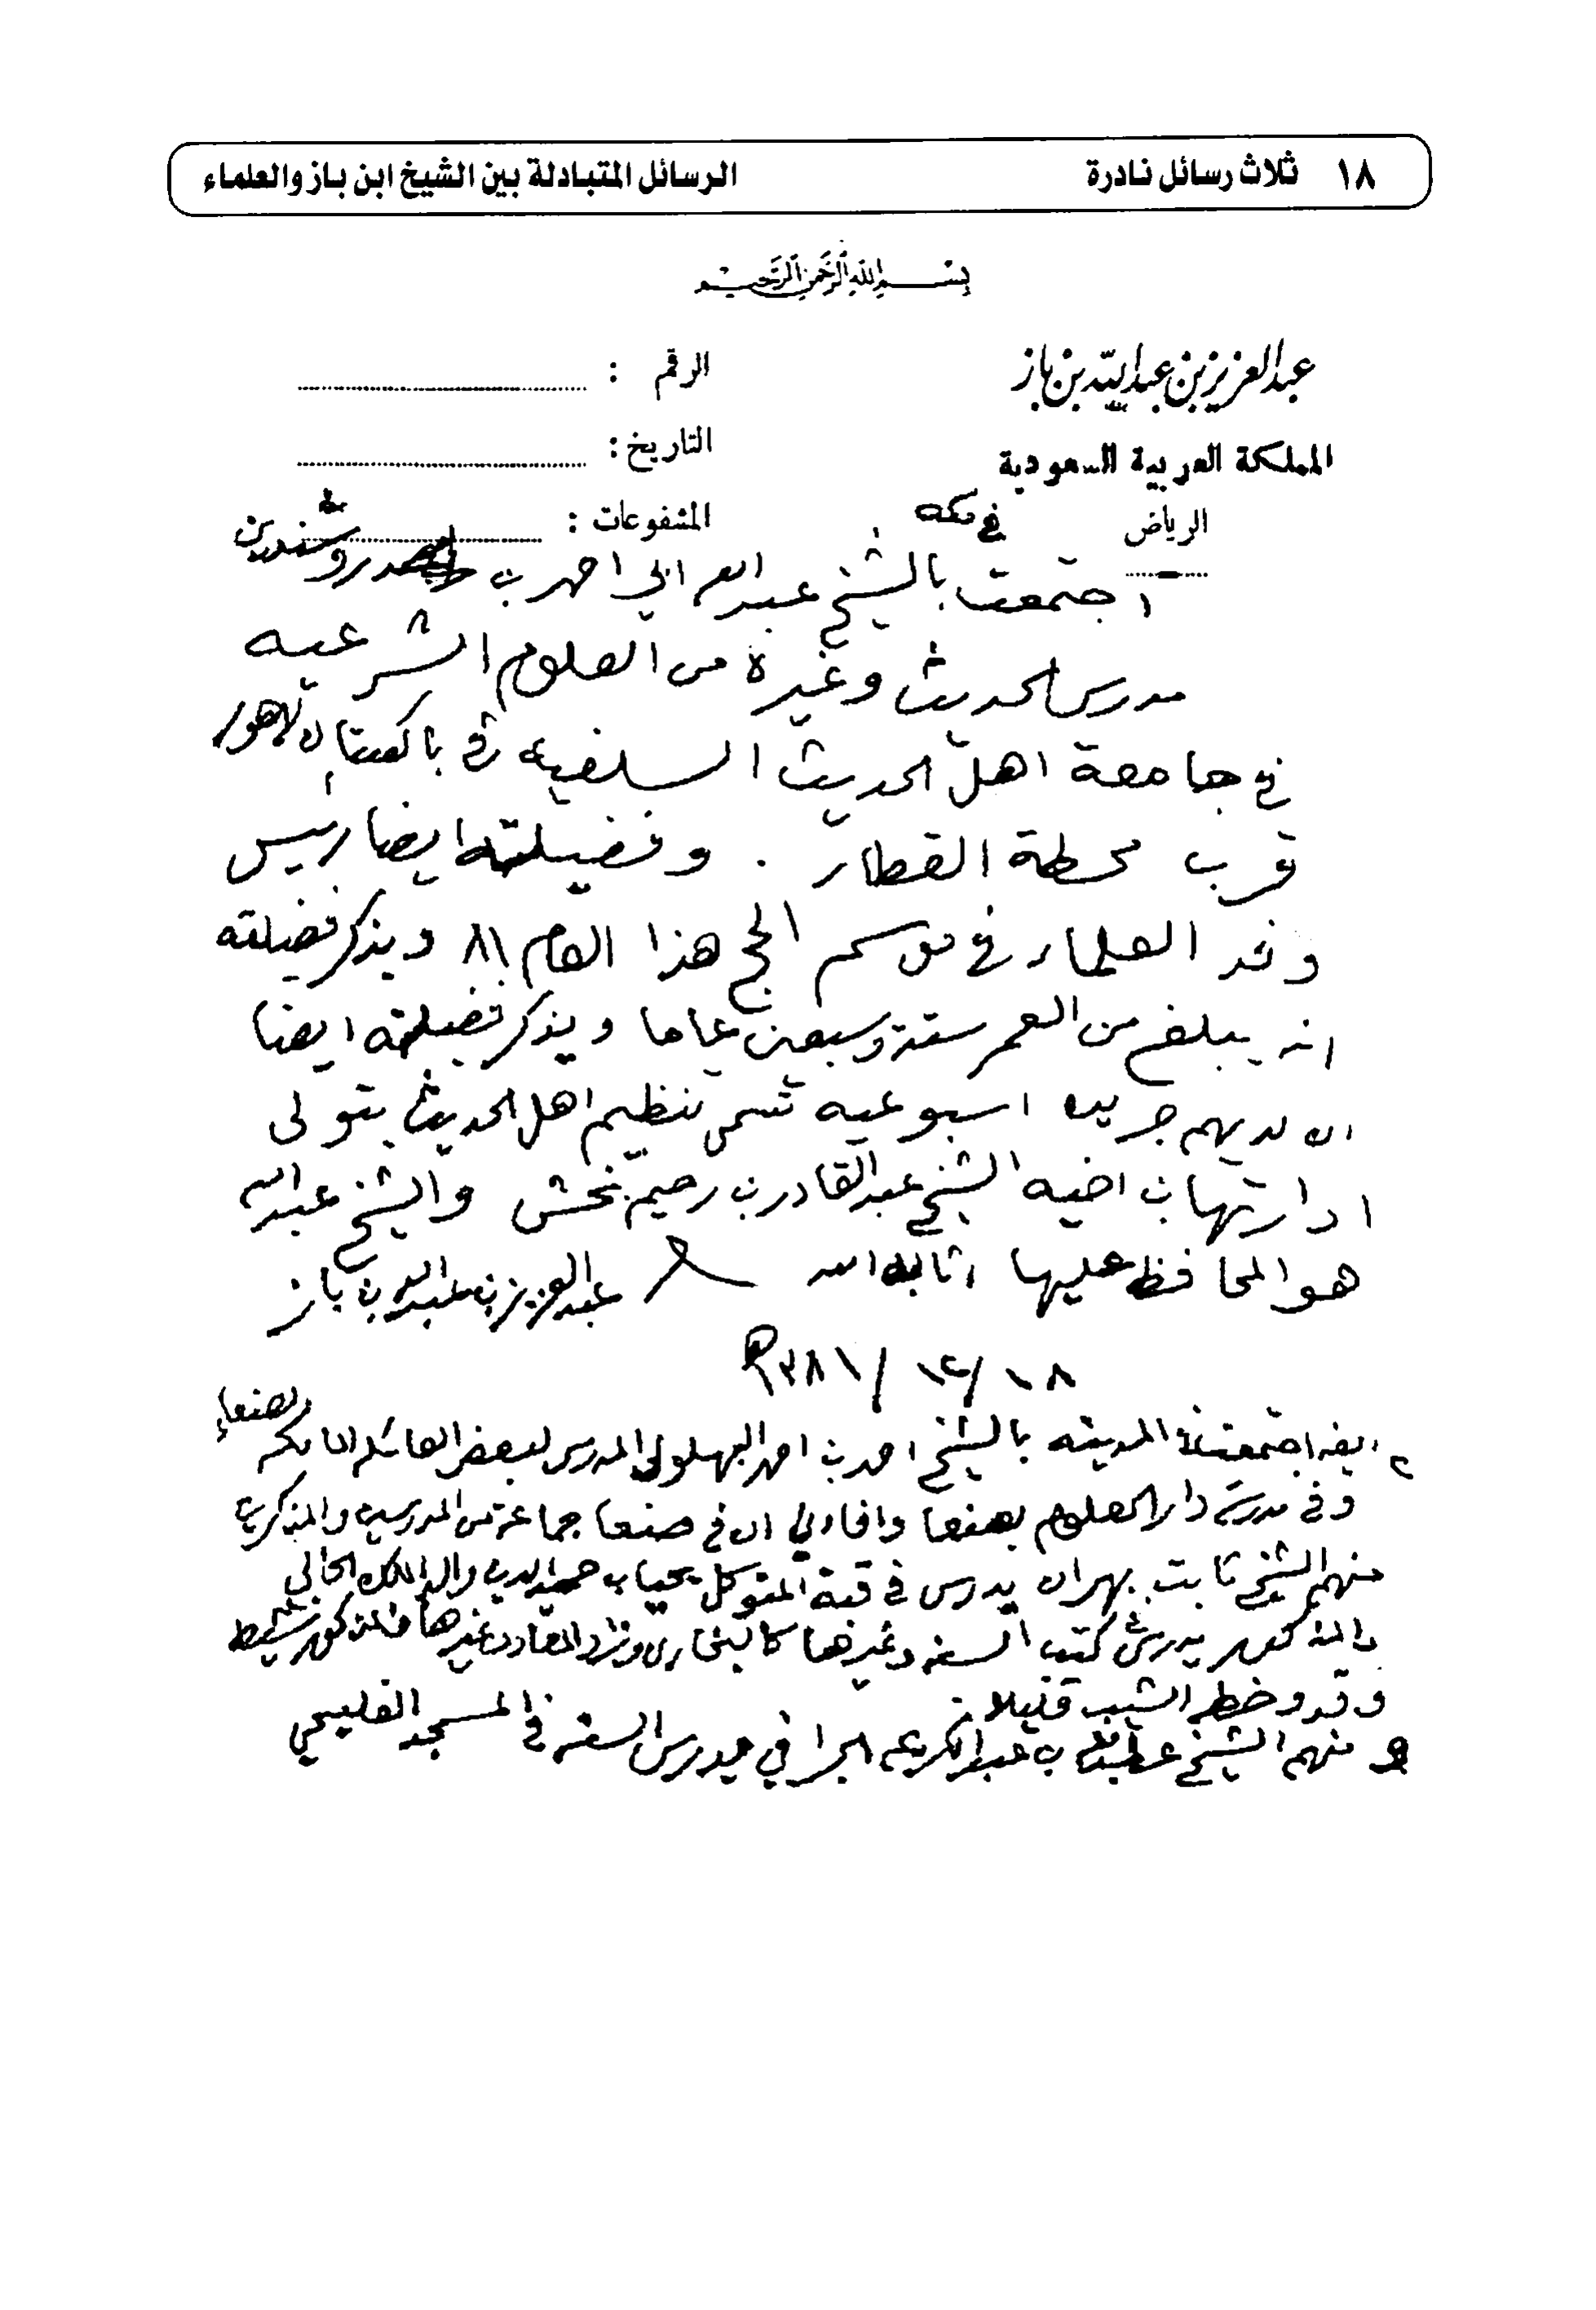 ١٨ ثلاث رسائل نادرة الرسائل المتبادلة بين الشيخ ابن باز والعلماء
بسم الله الرحمن الرحيم
عبد العزيز بن عبد الله بن باز
المملكة العربية السعودية
الرياض
الرقم :
التاريخ :
المشفوعات :
في مكه
اجتمعت بالشيخ عبد الله ابي احمد بن
مدرس الحديث وغيره من العلوم الشرعيه
في جامعة اهل الحديث السلفيه في باكستان لاهور
قرب محطة القطار . وفضيلته ايضا رئيس
وفد العلماء في موسم الحج هذا العام ٨١ ويذكر فضيلته
انه يبلغ من العمر ستة وسبعين عاما ويذكر فضيلته ايضا
ان لديهم جريده اسبوعيه تسمى تنظيم اهل الحديث يتولى
ادارتها بن اخيه الشيخ عبد القادر بن رحيم بخش والشيخ عبد الله
هو المحافظ عليها اثابه الله عبد العزيز بن عبد الله بن باز
١٨ / ١٢ / ١٣٨١
٢ ايضا اجتمعت في المدينه بالشيخ احمد بن احمد البهلولي المدرس لبعض العائله المالكه بصنعاء
وفي مدرسة دار العلوم بصنعا وافادني ان في صنعا جماعة من المدرسين والمذكرين
منهم الشيخ ثابت بهران يدرس في قبة المتوكل يحيا بن حميد الدين والد الملك الحالي
والمذكور يدرس كتب السنه وغيرها كالبخاري وزاد المعاد وغيرها والمذكور نشيط
وقد وخطه الشيب قليلا
ومنهم الشيخ عبد الله بن عبد الكريم الجرافي مدرس السنه في المسجد الفليحي